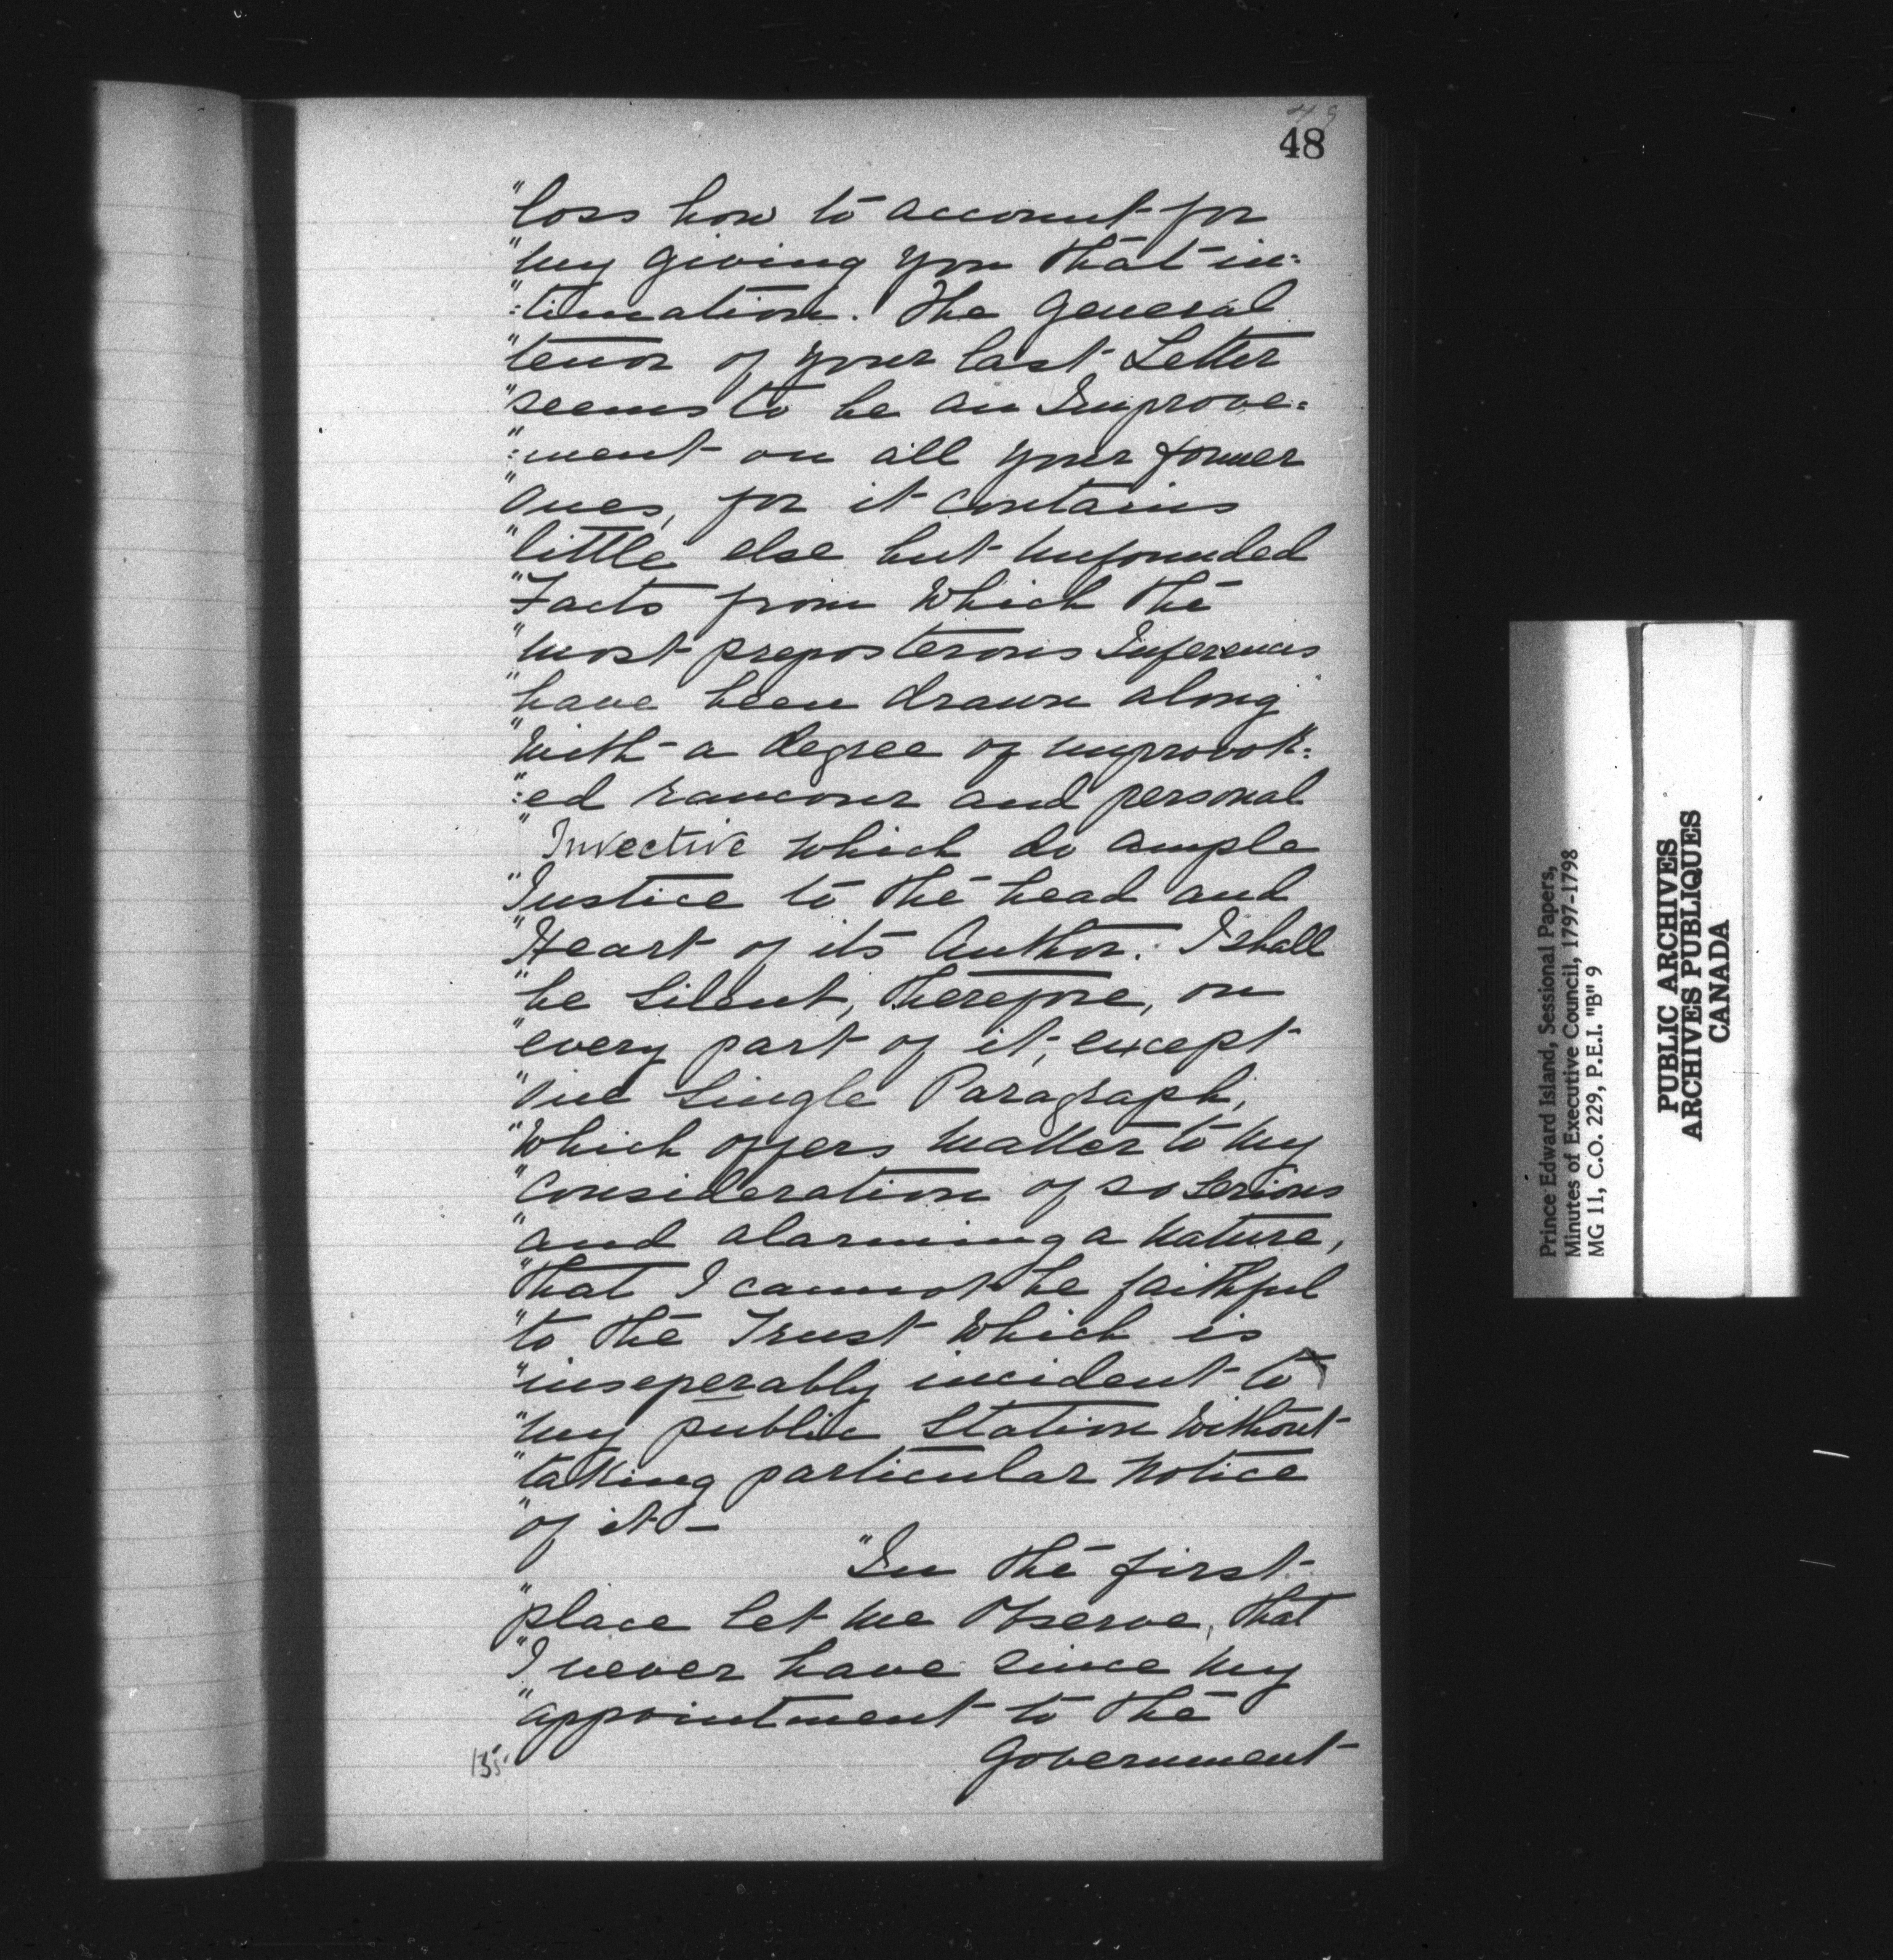 48
"loss how to account for
"my giving you that in:
":timation. The General
"tenor of your last Letter
"seems to be an Improve:
":ment on all your former
"ones, for it contains
"little else but unfounded
"Facts from which the
"most preposterous Inferences
"have been drawn along
"with a degree of unprovok:
":ed rancour and personal
"Invective which do ample
"Justice to the head and
"Heart of its Author. I shall
"be Silent, therefore, on
"every part of it, except
"one Single Paragraph,
"which offers matter to my
"Consideration of so Serious
"and alarming a Nature,
"that I cannot be faithful
"to the Trust which is
"inseperably incident to
"my public Station without
"taking particular Notice
"of it –
"In the first
"place let me Observe, that
"I never have since my
"appointment to the
Government
135.
Prince Edward Island, Sessional Papers,
Minutes of Executive Council, 1797-1798
MG 11, C.O. 229, P.E.I. "B" 9
PUBLIC ARCHIVES
ARCHIVES PUBLIQUES
CANADA